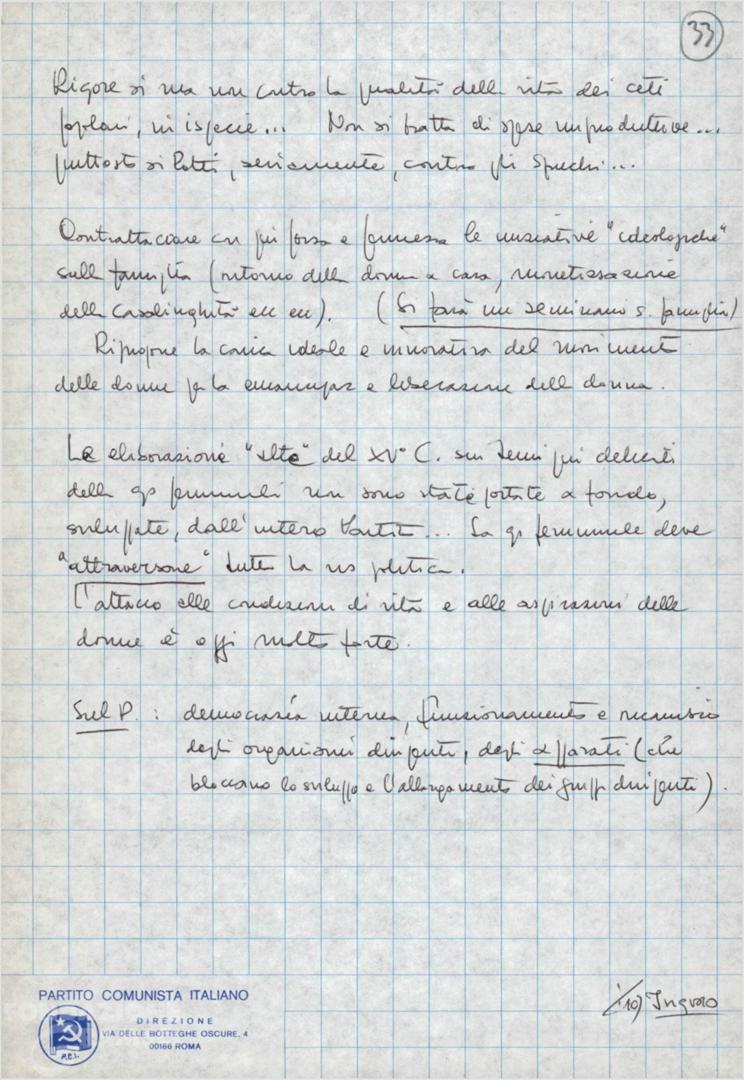 33
Rigore sì ma non contro la qualità della vita dei ceti
popolari, in ispecie... Non si tratta di spese improduttive...
piuttosto si lotti, seriamente, contro gli sprechi...
Contrattaccare con più forza e fermezza le iniziative "ideologiche"
sulla famiglia (ritorno della donna a casa, monetizzazione
della casalinghità ecc ecc). (Si farà un seminario s. famiglia)
Ripropone la carica ideale e innovativa dei movimenti
delle donne per la emancipaz e liberazione della donna.
Le elaborazione "alte" del XV° C. sui temi più delicati
della qs femminile non sono state portate a fondo,
sviluppate, dall'intero Partito... La qs femminile deve
"attraversare" tutta la ns politica.
L'attacco alle condizioni di vita e alle aspirazioni delle
donne è oggi molto forte.
Sul P. : democrazia interna, funzionamento e ricambio
degli organismi dirigenti, degli apparati (che
bloccano lo sviluppo e l'allargamento dei gruppi dirigenti).
PARTITO COMUNISTA ITALIANO
DIREZIONE
VIA DELLE BOTTEGHE OSCURE, 4
00186 ROMA
P.C.I.
10) Ingrao